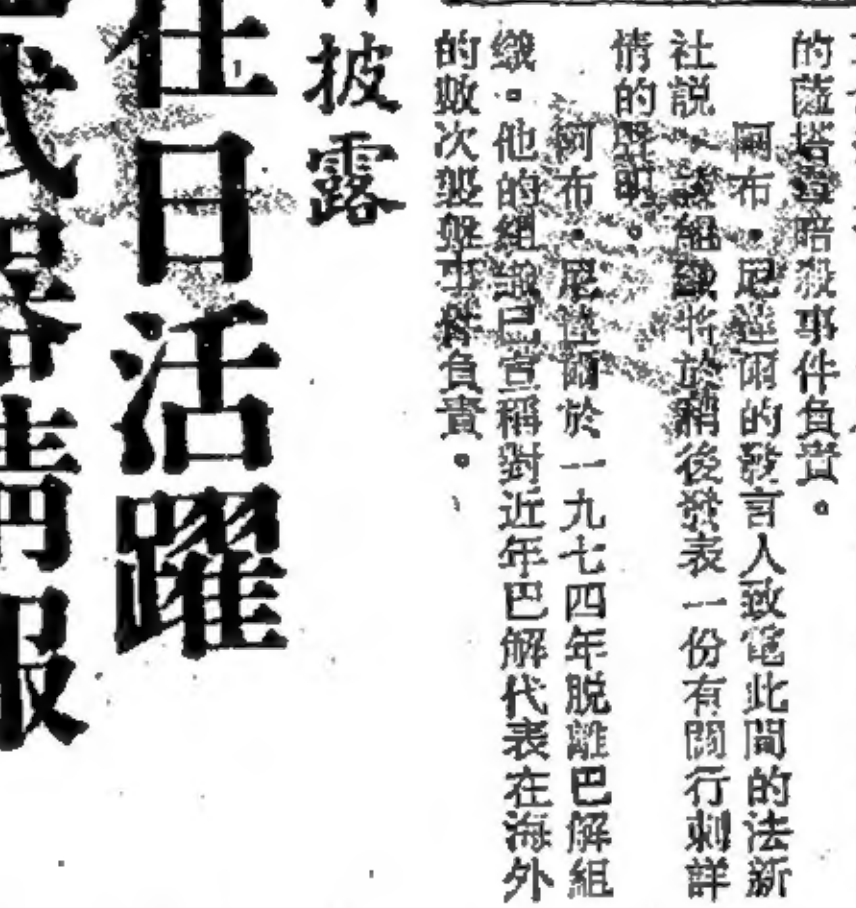 的薩塔韋暗殺事件負責。
阿布・尼達爾的發言人致電此間的法新
社説，該組織將於稍後發表一份有關行刺詳
情的聲明。
阿布・尼達爾於一九七四年脱離巴解組
織。他的組織已宣稱對近年巴解代表在海外
的數次襲擊事件負責。
披露
在日活躍
武器情報